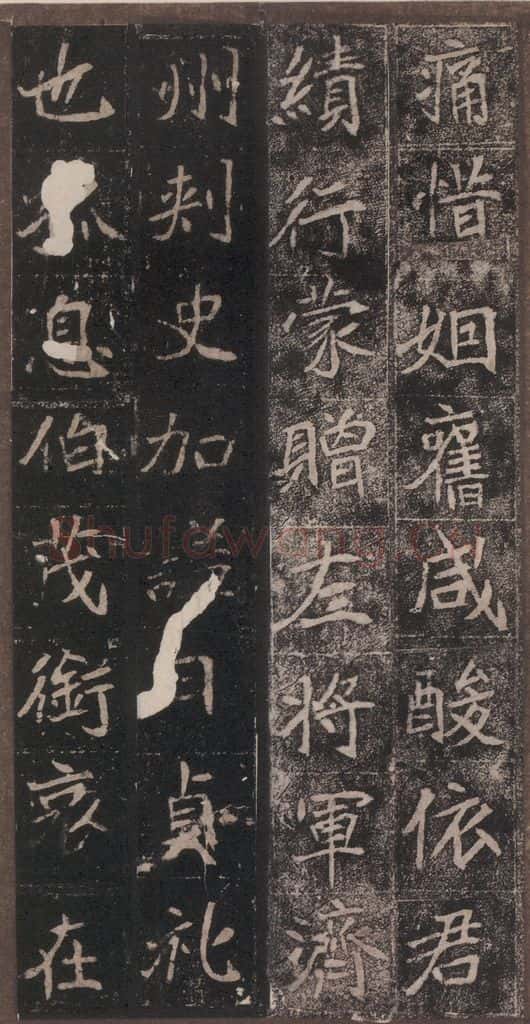 痛惜姻舊咸酸依君
績行蒙贈左將軍濟
州刾史加曰貞礼
也息伯茂銜哀在
shufawang.cn